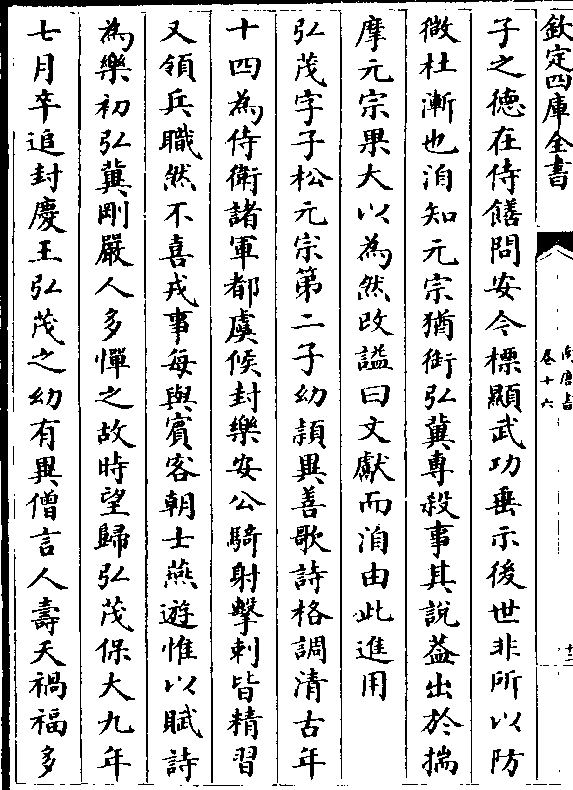 欽定四庫全書
南唐書
卷十六
十二
子之德在侍饍問安今標顯武功垂示後世非所以防
微杜漸也洎知元宗猶銜弘冀專殺事其說葢出於揣
摩元宗果大以為然改諡曰文獻而洎由此進用
弘茂字子松元宗第二子幼頴異善歌詩格調清古年
十四為侍衛諸軍都虞候封樂安公騎射擊刺皆精習
又領兵職然不喜戎事每與賓客朝士燕遊惟以賦詩
為樂初弘冀剛嚴人多憚之故時望歸弘茂保大九年
七月卒追封慶王弘茂之幼有異僧言人壽夭禍福多